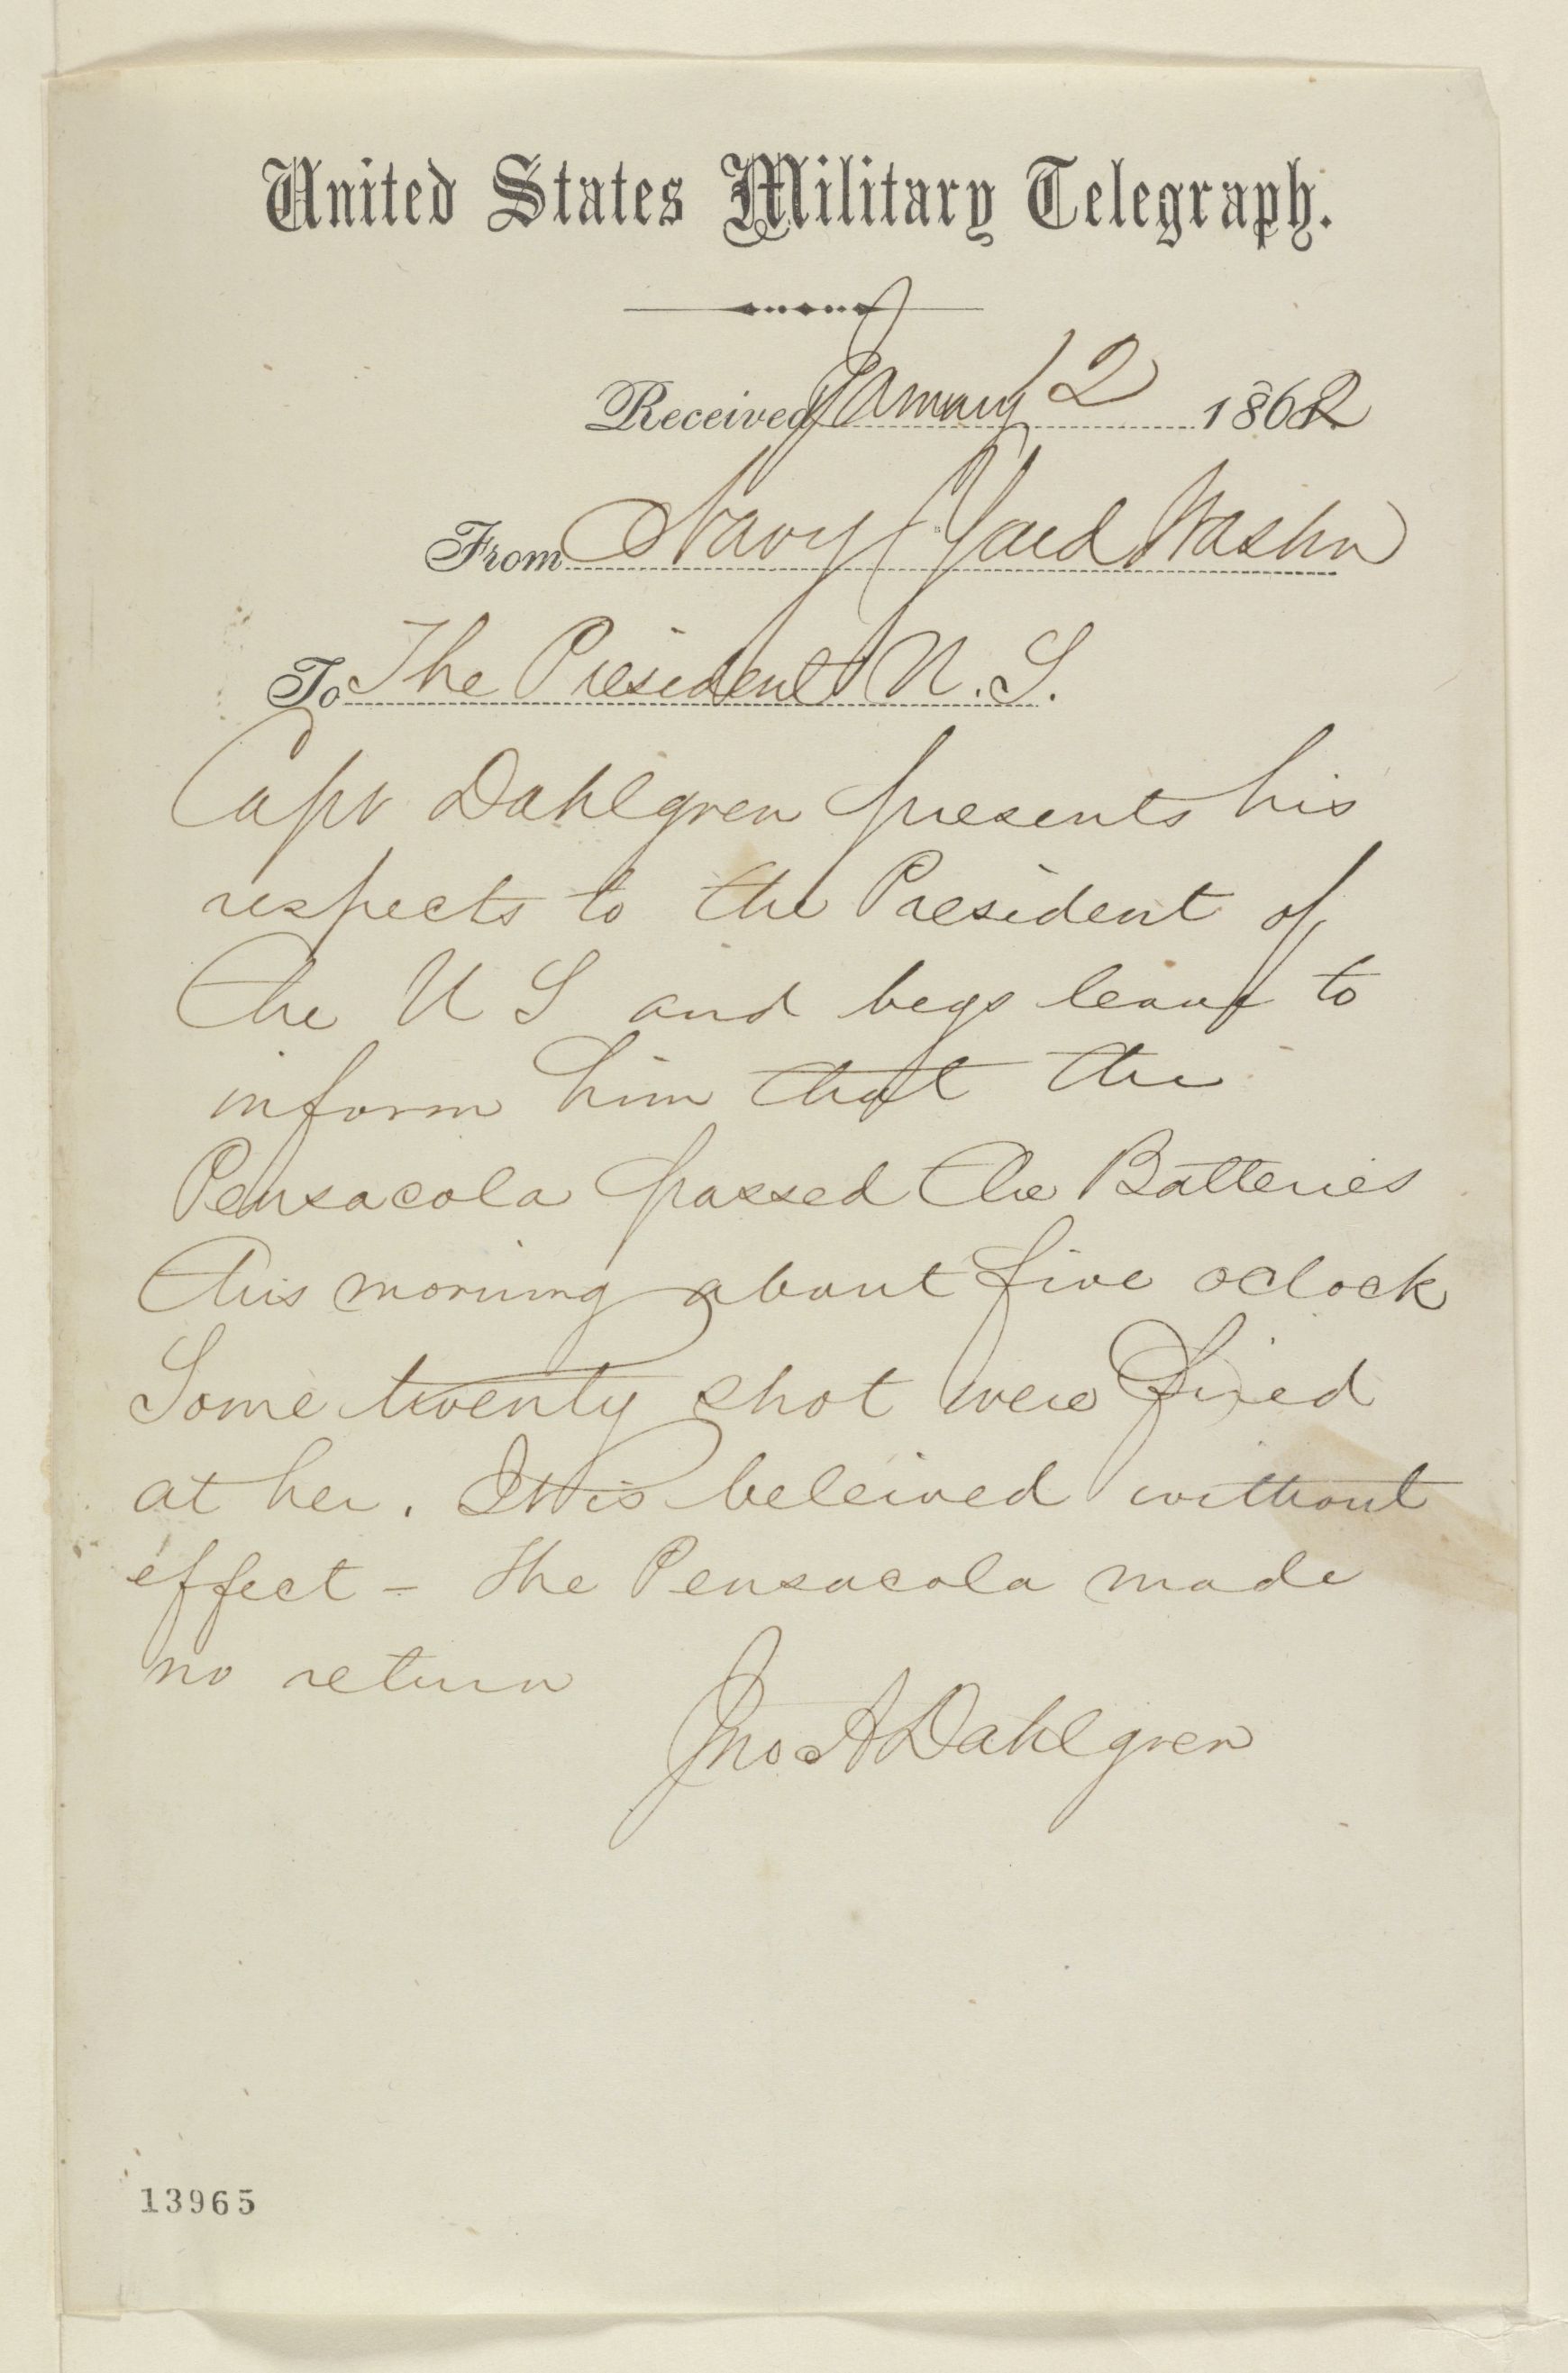 United States Military Telegraph.
Received January 2 1862
From Navy Yard Washn
To The President U. S.
Capt Dahlgren presents his
respects to the President of
the U S and begs leave to
inform him that the
Pensacola passed the Batteries
this morning about five oclock
Some twenty shot were fired
at her. It is beleived without
effect - The Pensacola made
no return
Jno A Dahlgren
13965